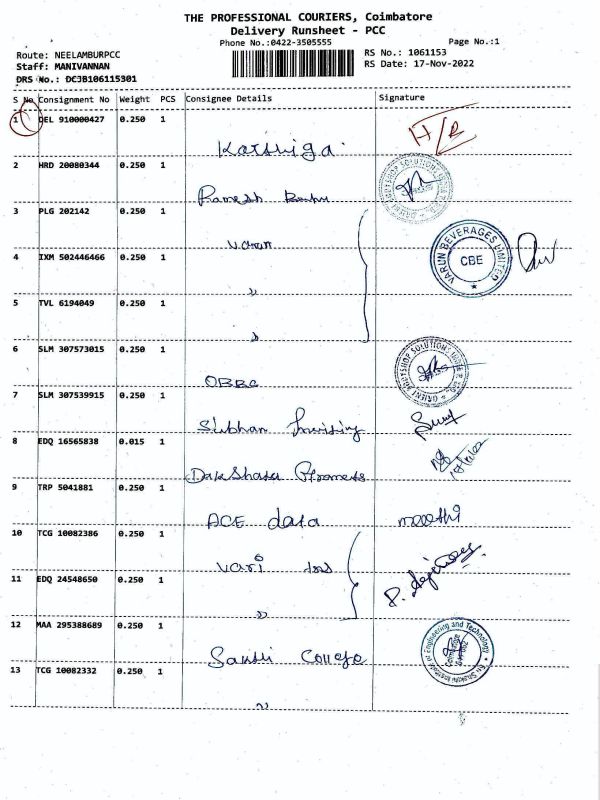 THE PROFESSIONAL COURIERS, Coimbatore
Delivery Runsheet - PCC
Phone No.:0422-3505555 Page No.:1
Route: NEELAMBURPCC RS No.: 1061153
Staff: MANIVANNAN RS Date: 17-Nov-2022
DRS No.: DCJB106115301
S No Consignment No Weight PCS Consignee Details Signature
1 DEL 910000427 0.250 1
H/R
2 HRD 20080344 0.250 1
Ramesh Babu
3 PLG 202142 0.250 1
Varun
VARUN BEVERAGES LIMITED
CBE
4 IXM 502446466 0.250 1
"
5 TVL 6194049 0.250 1
"
6 SLM 307573015 0.250 1
7 SLM 307539915 0.250 1
8 EDQ 16565838 0.015 1
9 TRP 5041881 0.250 1
ACE data
10 TCG 10082386 0.250 1
11 EDQ 24548650 0.250 1
"
12 MAA 295388689 0.250 1
Sakthi College
13 TCG 10082332 0.250 1
"